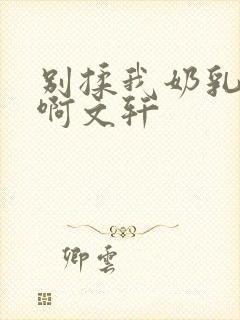 别揉我奶乳
啊文轩
卿云